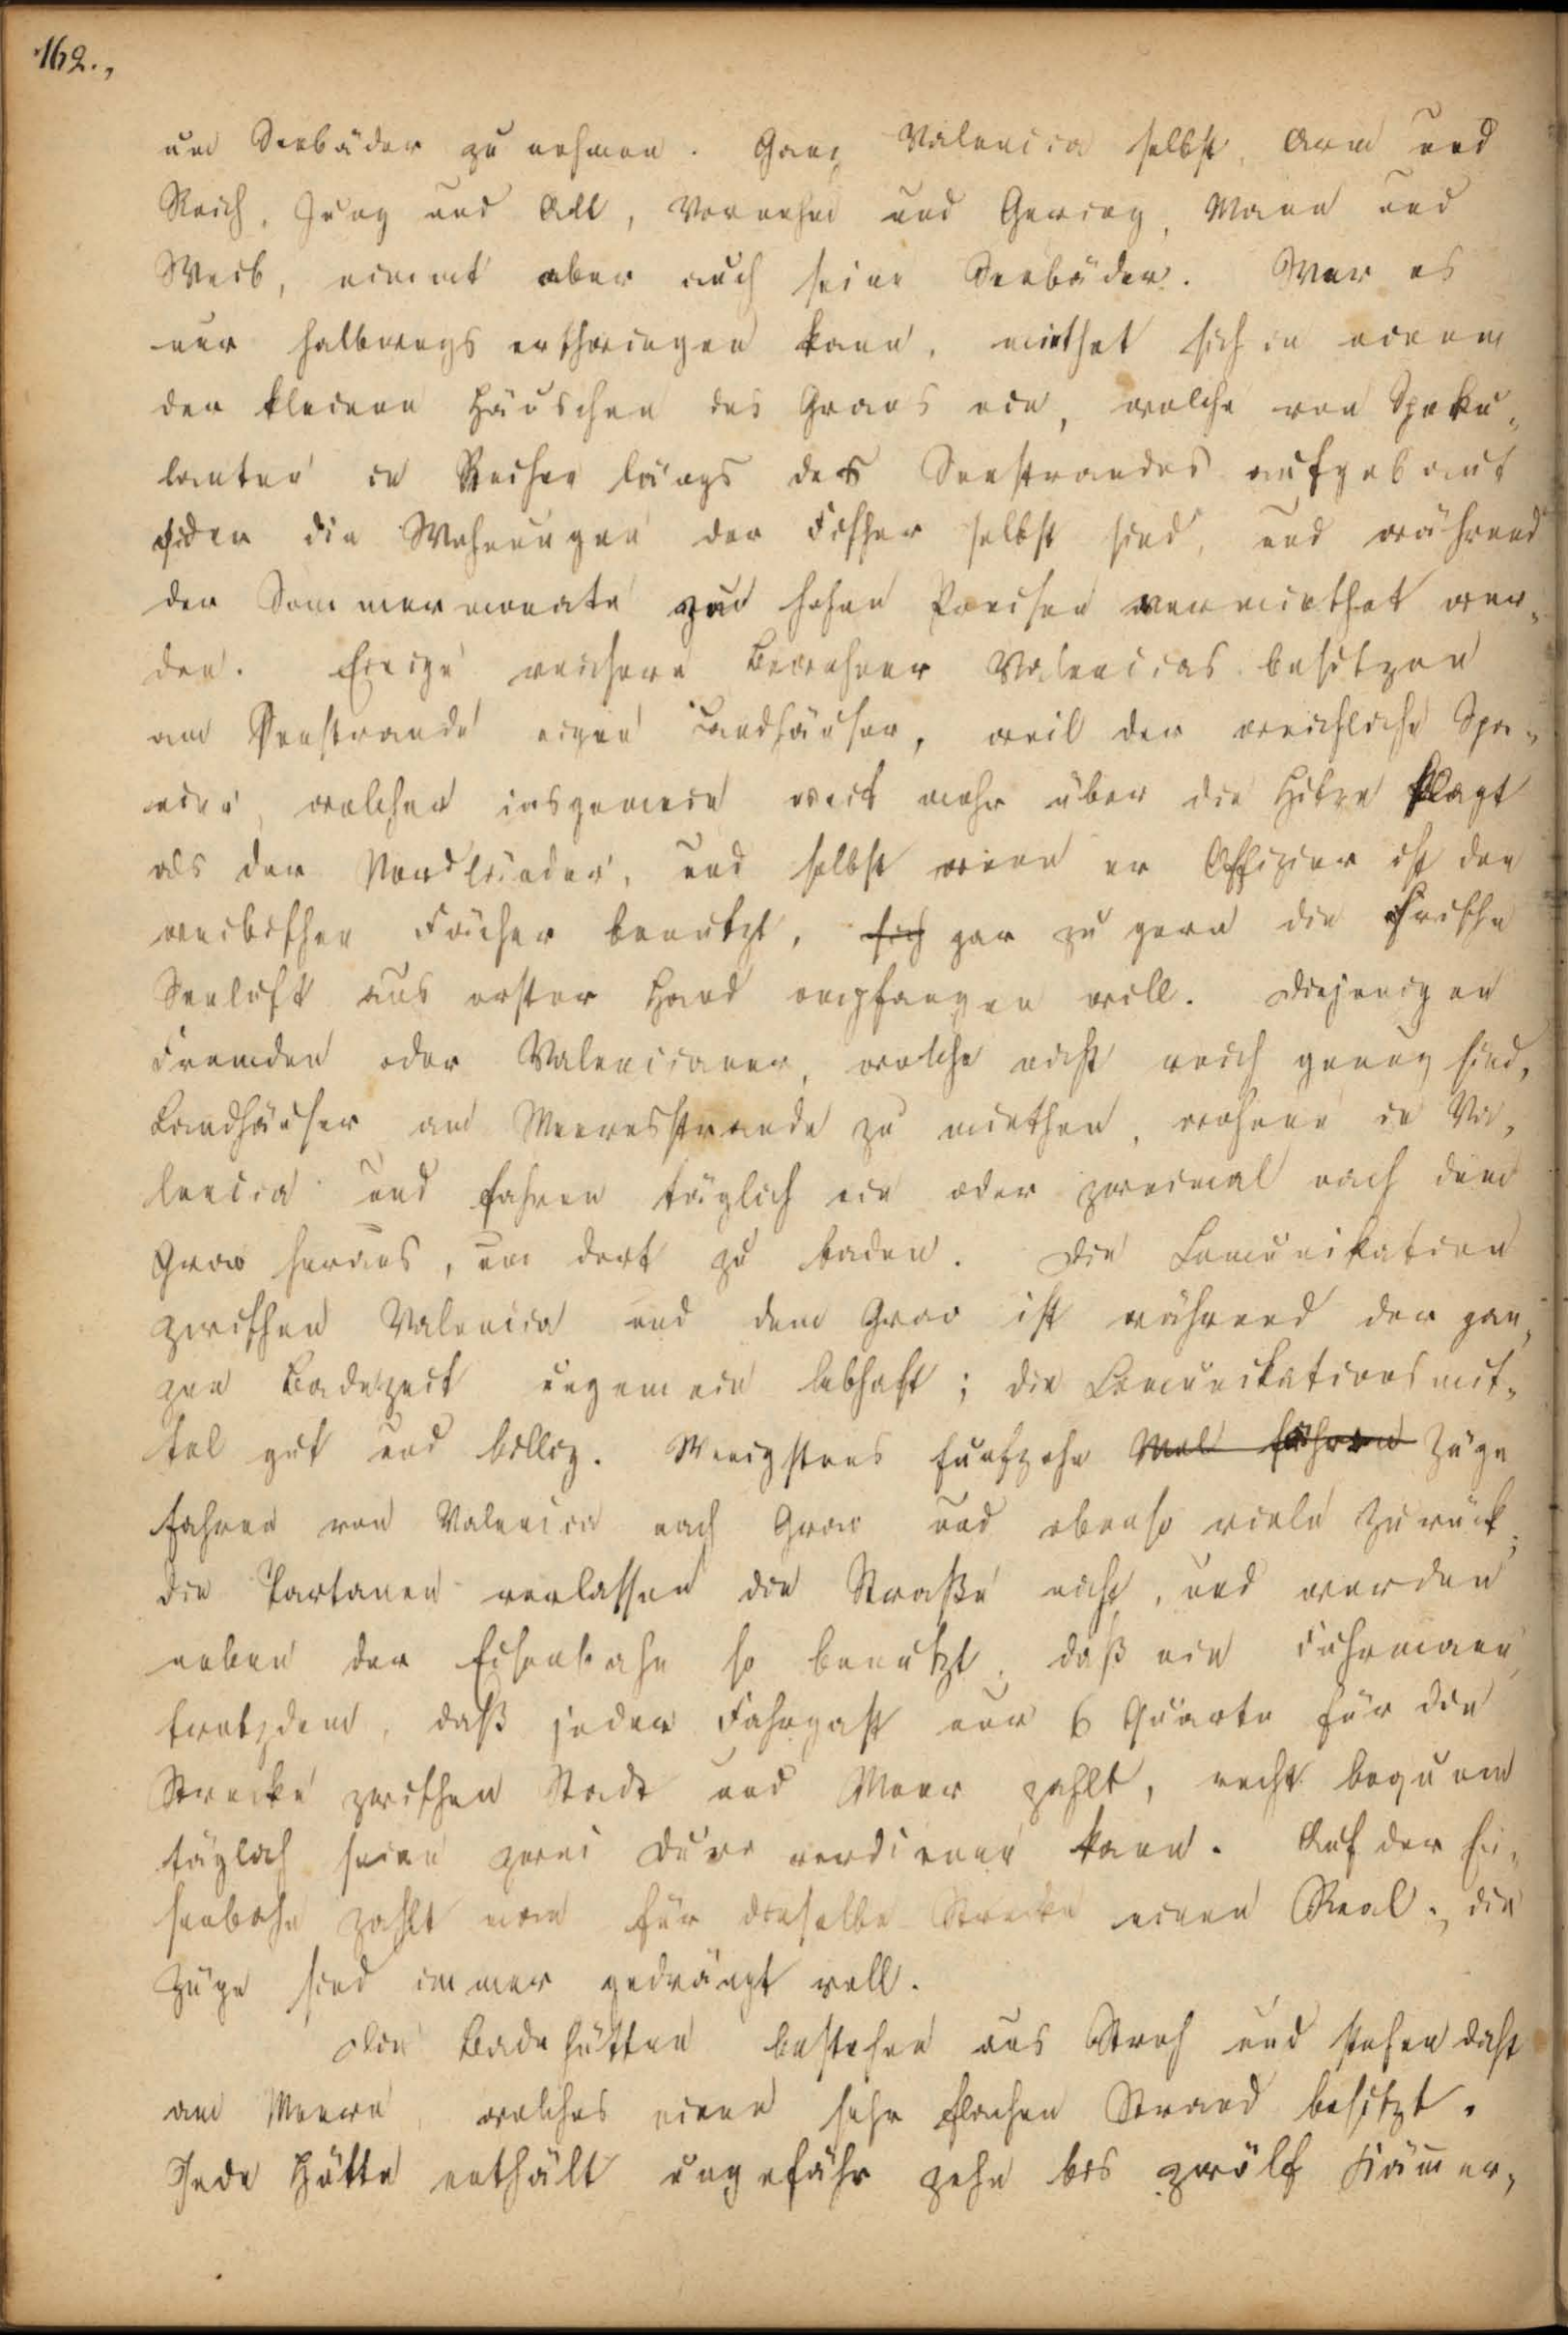 162.,
um Seebäder zu nehmen. Ganz Valencia selbst, Arm und
Reich, Jung und Alt, Vornehm und Gering, Mann und
Weib, nimmt aber auch seine Seebäder. Wer es
nur halbwegs erschwingen kann, miethet sich in einem
der kleinen Häuschen des Graos ein, welche von Speku-
lanten in Reihen längs des Seestrandes aufgebaut
oder die Wohnungen der Fischer selbst sind, und während
der Sommermonate zu hohen Preisen vermiethet wer-
den. Einige reichere Bewohner Valencias besitzen
am Seestrande eigene Landhäuser, weil der weichliche Spa-
nier, welcher insgemein weit mehr über die Hitze klagt
als der Nordländer, und selbst wenn er Offizier ist den
weibischen Fächer benutzt, sich gar zu gern die frische
Seeluft aus erster Hand empfangen will. Diejenigen
Fremden oder Valencianer, welche nicht reich genug sind,
Landhäuser am Meeresstrande zu miethen, wohnen in Va-
lencia und fahren täglich ein oder zweimal nach dem
Grao heraus, um dort zu baden. Die Comunikation
zwischen Valencia und dem Grao ist während der gan-
zen Badezeit ungemein lebhaft; die Comunikationsmit-
tel gut und billig. Wenigstens funfzehn Mal fahren Züge
fahren von Valencia nach Grao und ebenso viele zurück;
die Tartanen verlassen die Straße nicht, und werden
neben der Eisenbahn so benutzt, daß ein Fuhrmann,
trotzdem, daß jeder Fahrgast nur 6 Quarte für die
Strecke zwischen Stadt und Meer zahlt, recht bequem
täglich seine zwei Duro verdienen kann. Auf der Ei-
senbahn zahlt man für dieselbe Strecke einen Real; die
Züge sind immer gedrängt voll.
Die Badehütten bestehen aus Stroh und stehen dicht
am Meere, welches einen sehr flachen Strand besitzt.
Jede Hütte enthält ungefähr zehn bis zwölf Kämer-